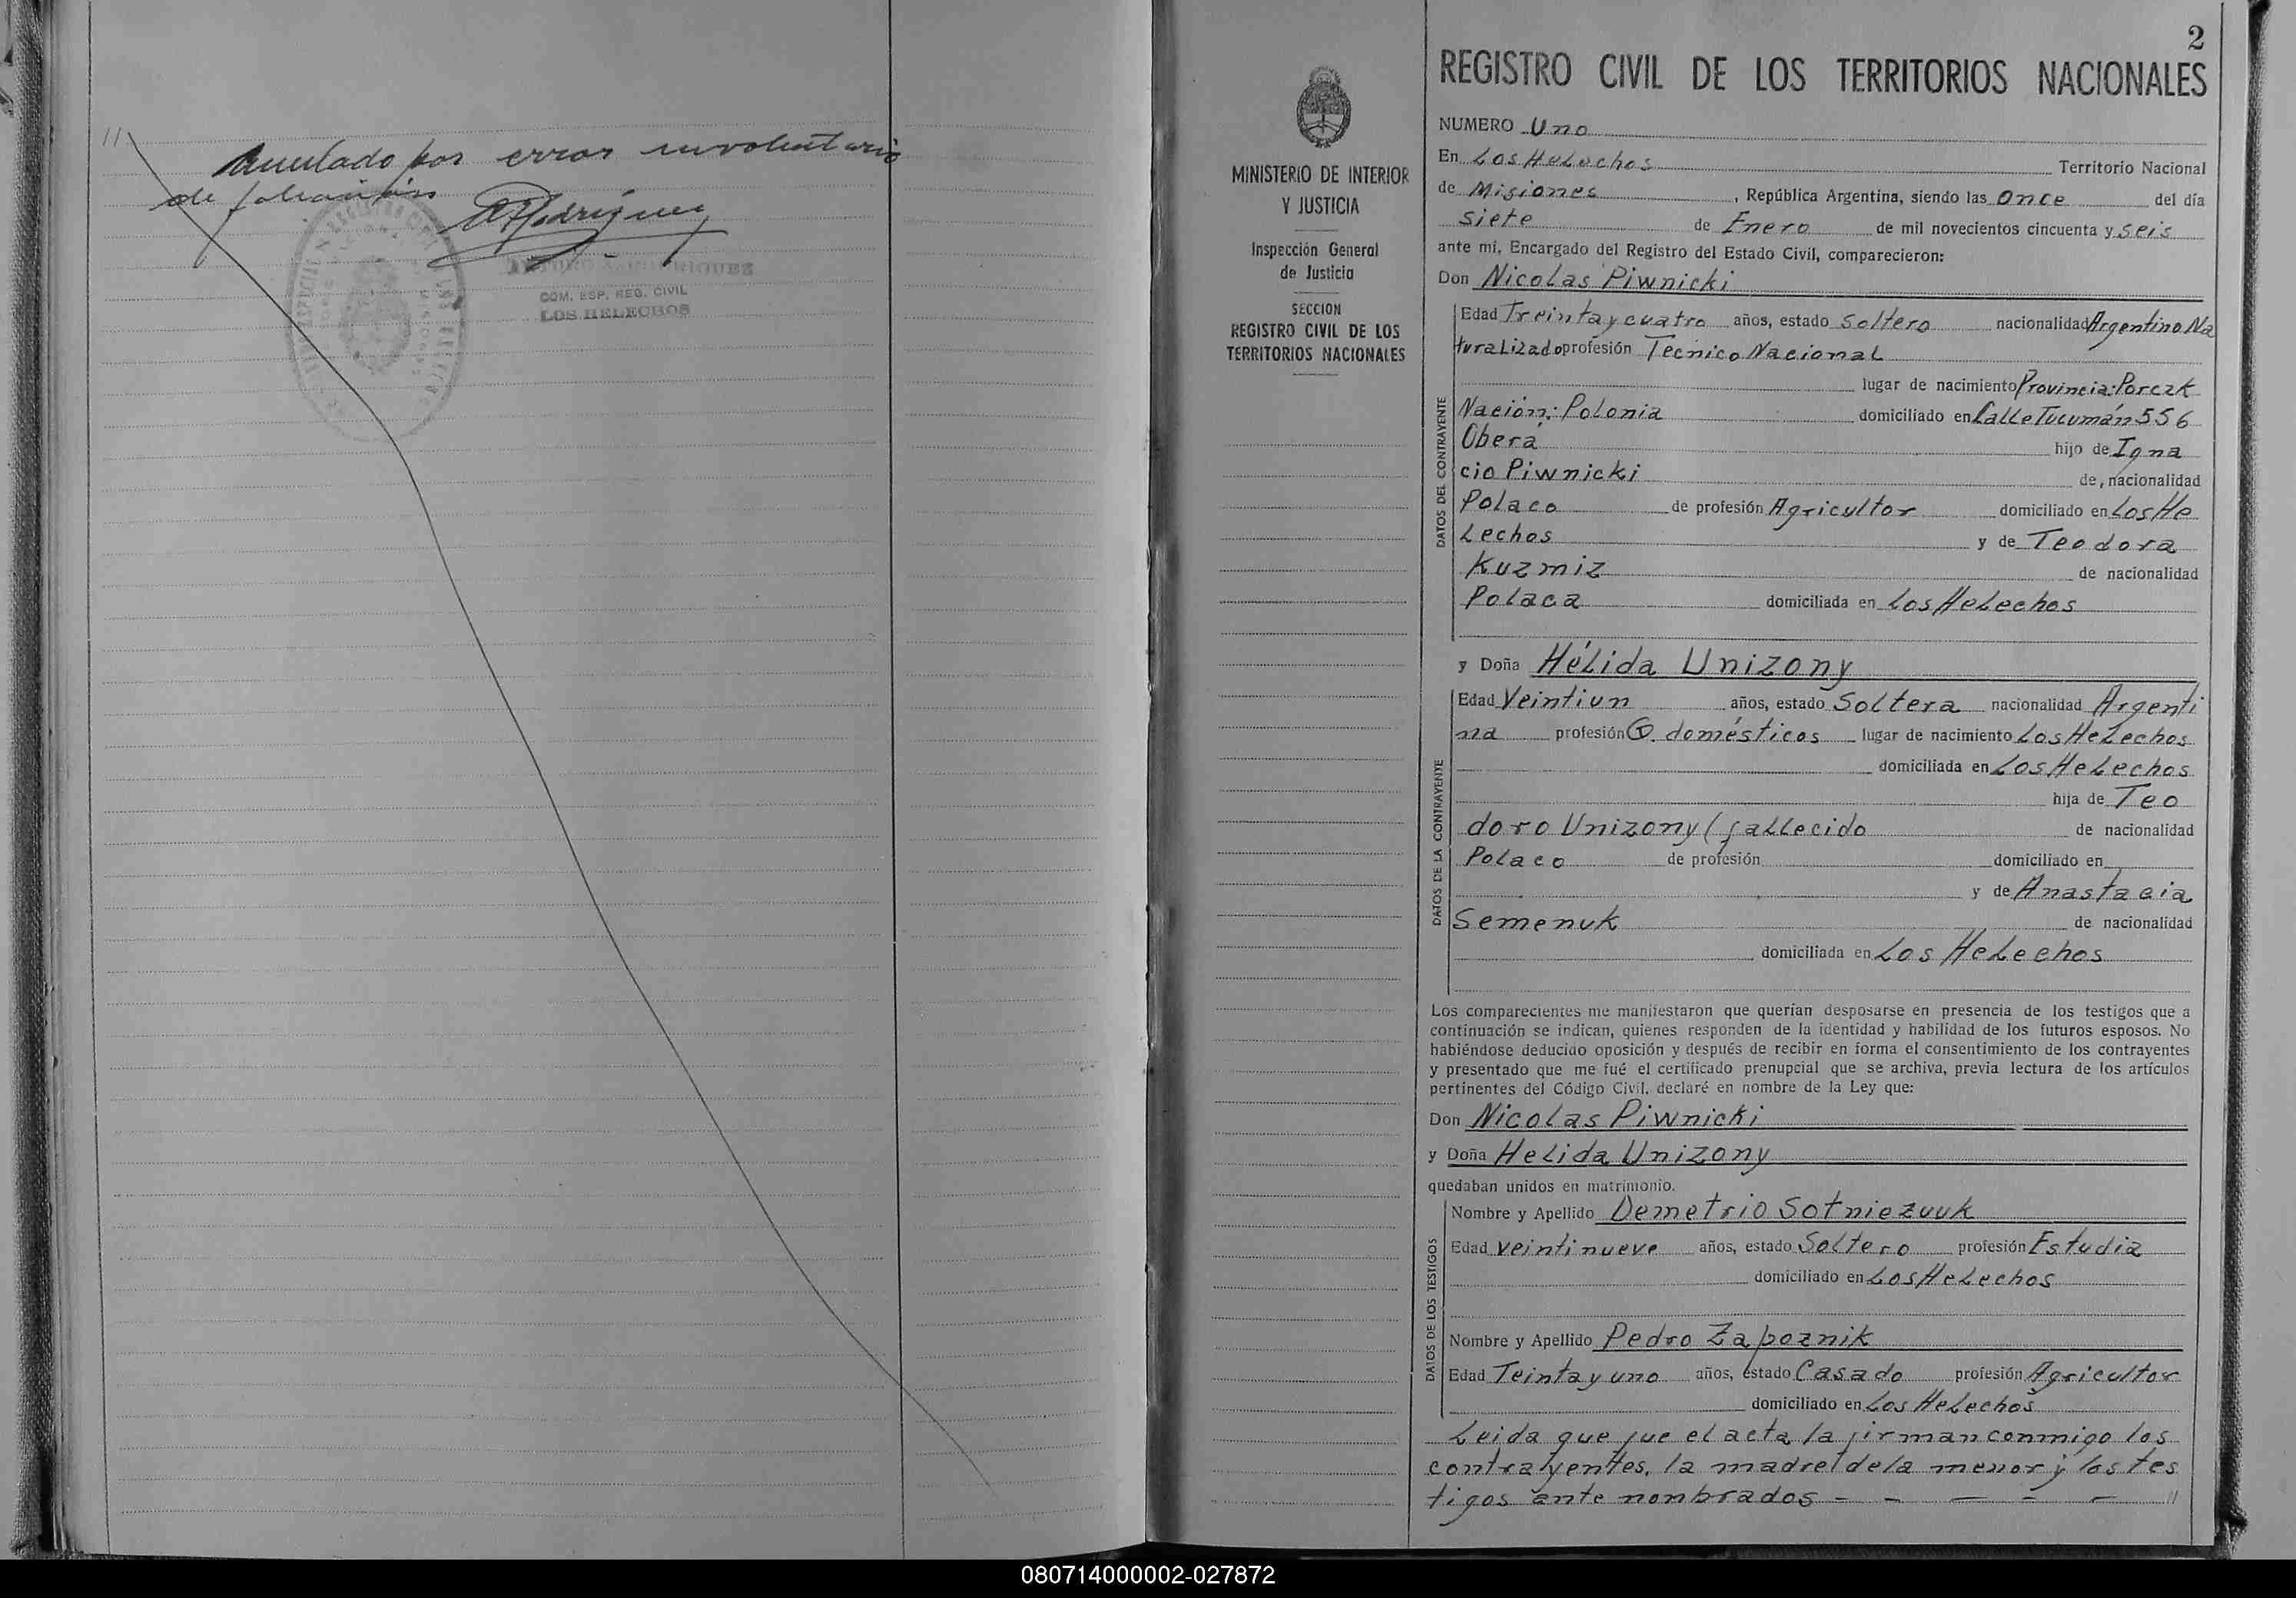 //
Anulado por error involuntario
de foliación
ARodríguez
COM. ESP. REG. CIVIL
LOS HELECHOS
2
REGISTRO CIVIL DE LOS TERRITORIOS NACIONALES
MINISTERIO DE INTERIOR
Y JUSTICIA
Inspección General
de Justicia
SECCION
REGISTRO CIVIL DE LOS
TERRITORIOS NACIONALES
NUMERO Uno
En Los Helechos Territorio Nacional
de Misiones, República Argentina, siendo las Once del día
siete de Enero de mil novecientos cincuenta y seis
ante mí, Encargado del Registro del Estado Civil, comparecieron:
Don Nicolas Piwnicki
DATOS DEL CONTRAYENTE
Edad Treinta y cuatro años, estado soltero nacionalidad Argentino Na
turalizado profesión Tecnico Nacional
lugar de nacimiento Provincia: Porczk
Nación: Polonia domiciliado en Calle Tucumán 556
Oberá hijo de Igna
cio Piwnicki de, nacionalidad
Polaco de profesión Agricultor domiciliado en Los He
lechos y de Teodora
Kuzmiz de nacionalidad
Polaca domiciliada en Los Helechos
y Doña Hélida Unizony
DATOS DE LA CONTRAYENTE
Edad Veintiun años, estado Soltera nacionalidad Argenti
na profesión Q. domésticos lugar de nacimiento Los Helechos
domiciliada en Los Helechos
hija de Teo
doro Unizony (fallecido de nacionalidad
Polaco de profesión domiciliado en
y de Anastacia
Semenuk de nacionalidad
domiciliada en Los Helechos
Los comparecientes me manifestaron que querían desposarse en presencia de los testigos que a
continuación se indican, quienes responden de la identidad y habilidad de los futuros esposos. No
habiéndose deducido oposición y después de recibir en forma el consentimiento de los contrayentes
y presentado que me fué el certificado prenupcial que se archiva, previa lectura de los artículos
pertinentes del Código Civil, declaré en nombre de la Ley que:
Don Nicolas Piwnicki
y Doña Helida Unizony
quedaban unidos en matrimonio.
DATOS DE LOS TESTIGOS
Nombre y Apellido Demetrio Sotniezuuk
Edad veintinueve años, estado Soltero profesión Estudia
domiciliado en Los Helechos
Nombre y Apellido Pedro Zapoznik
Edad Teinta y uno años, estado Casado profesión Agricultor
domiciliado en Los Helechos
Leida que fue el acta la firman conmigo los
contrayentes, la madre de la menor y los tes
tigos ante nombrados - - - - - //
080714000002-027872